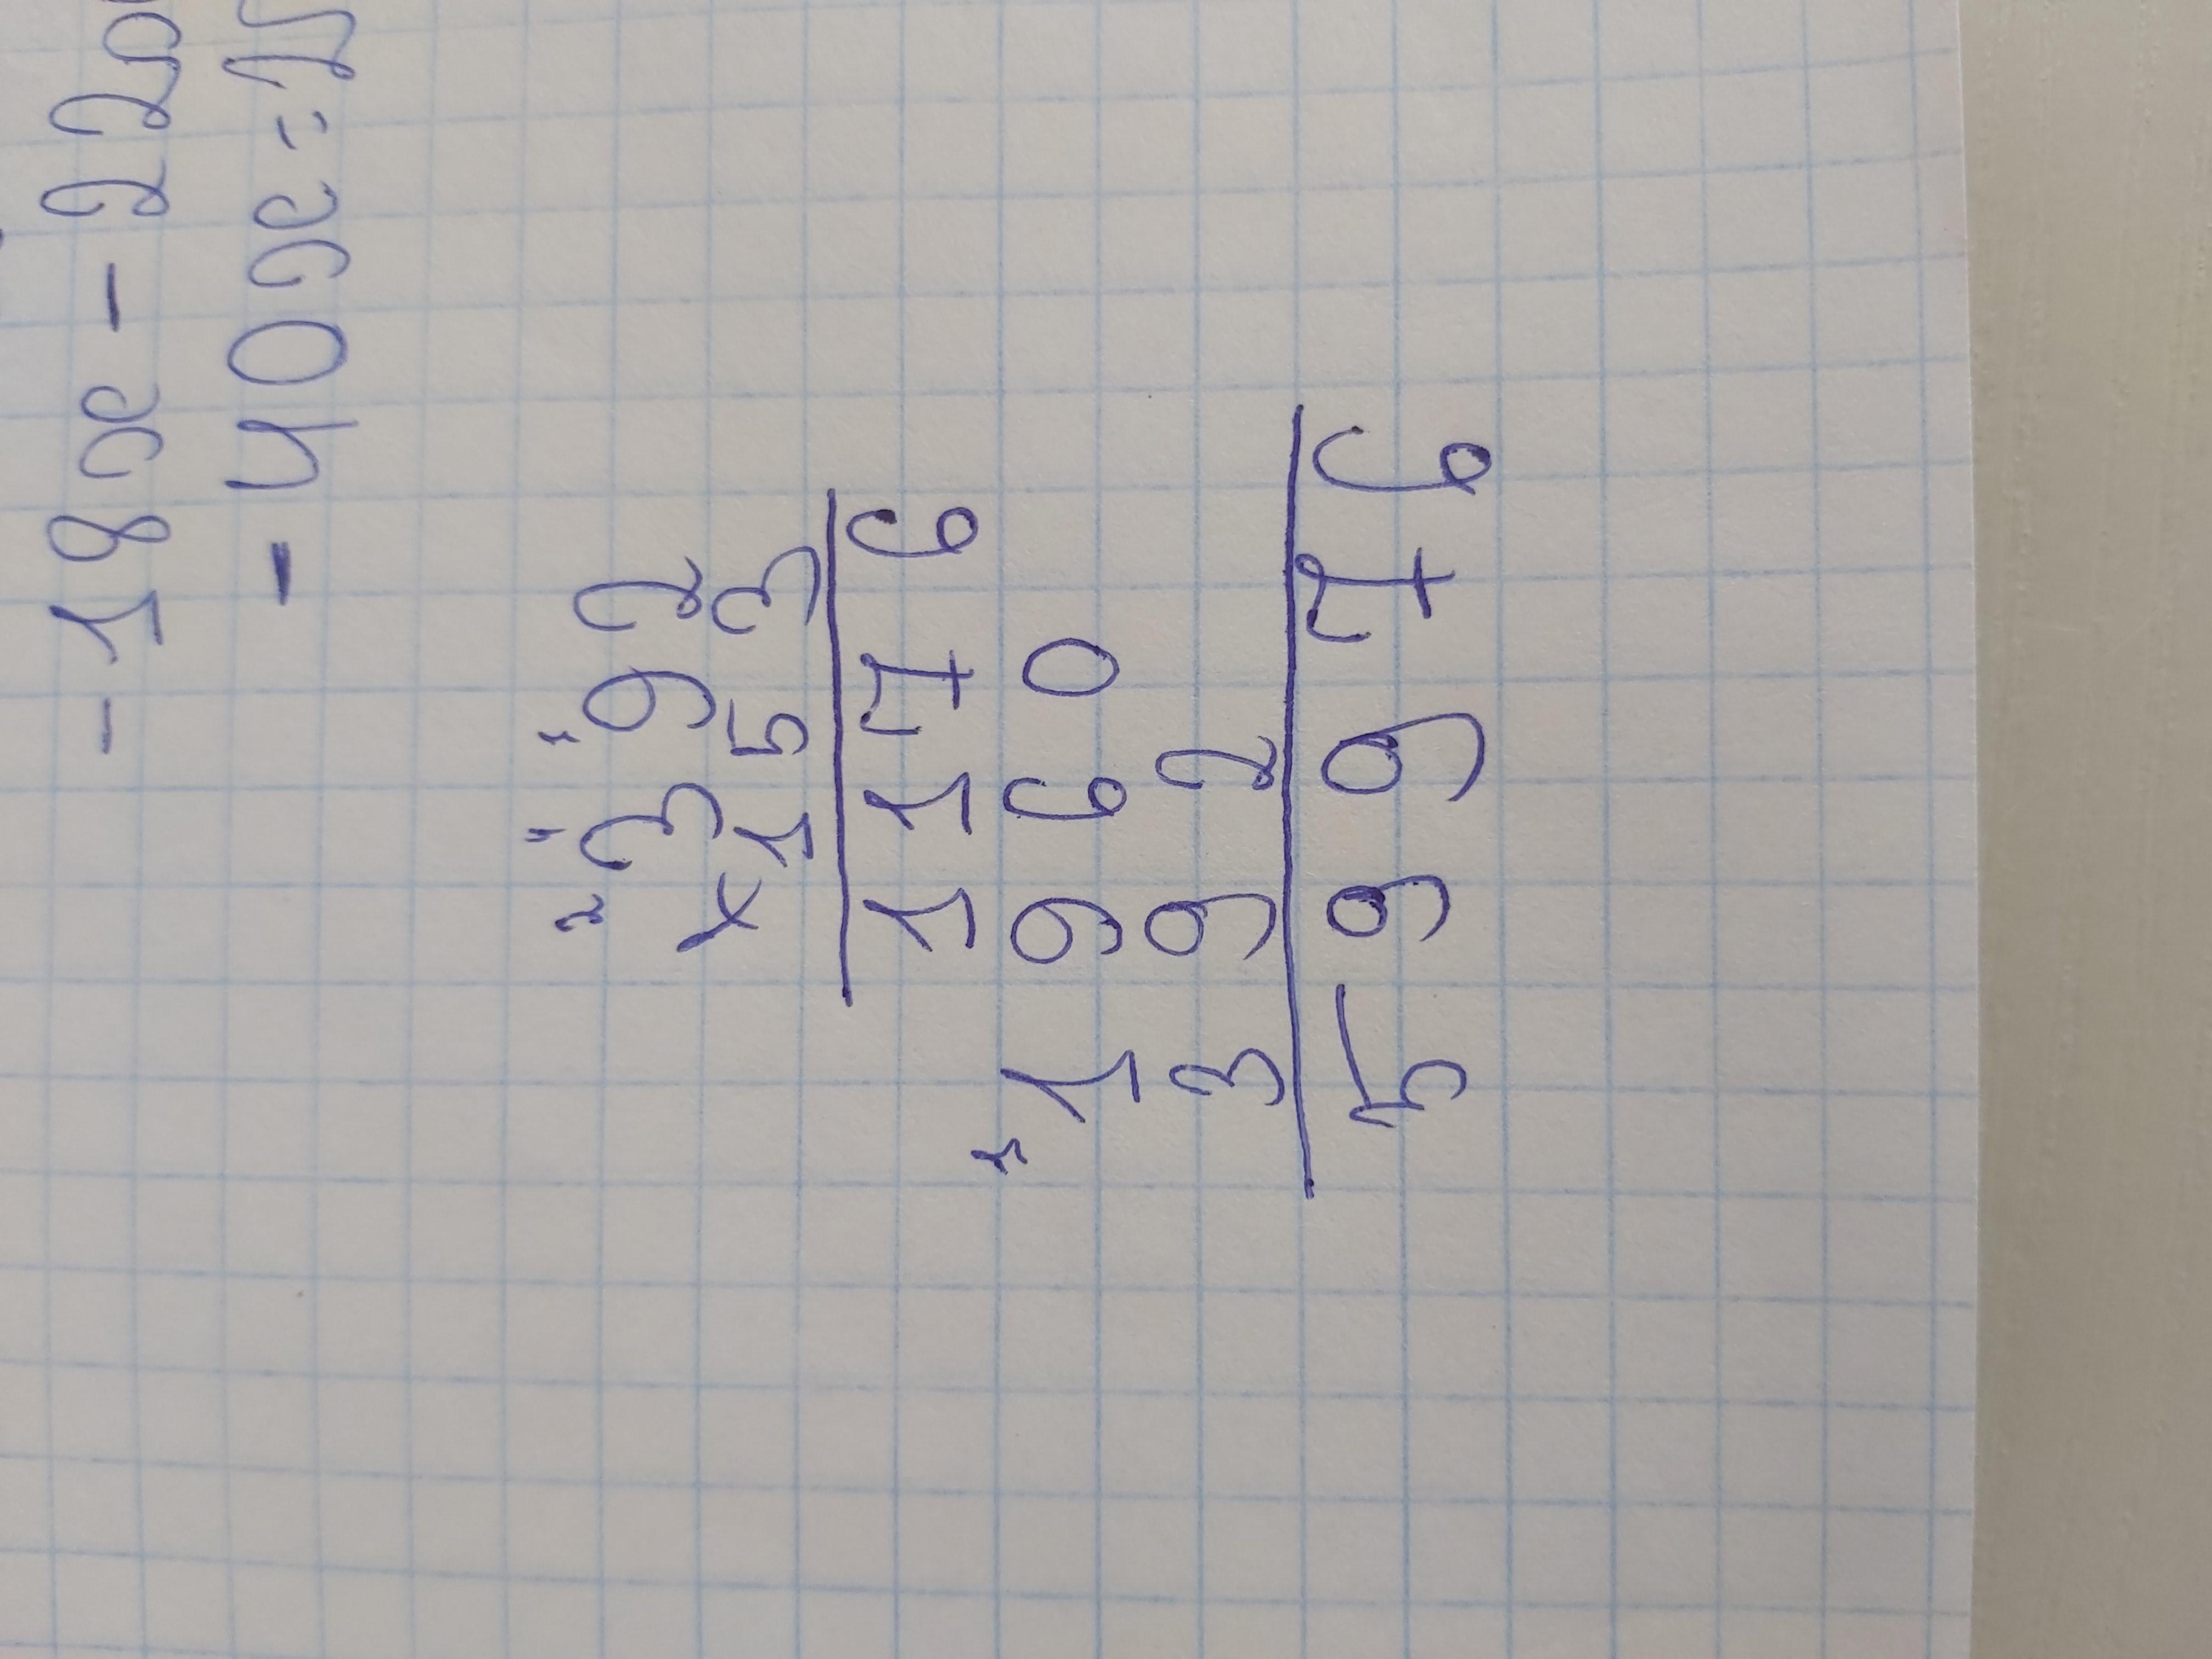 - 18x - 220
- 40x =
392
×153
1176
1960
392
59976